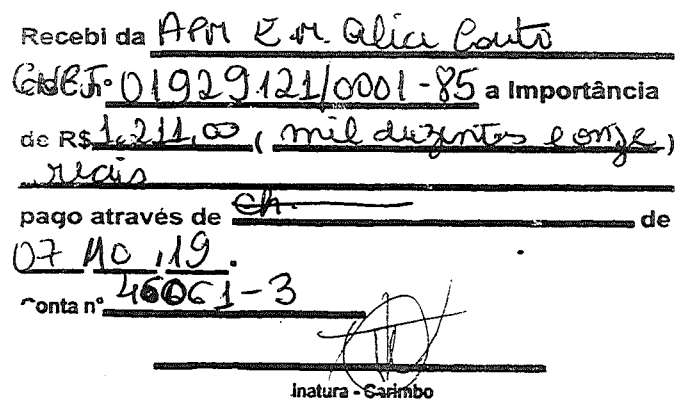 Recebi da APM E.M. Alice Couto
CNPJ nº 01929121/0001-85 a Importância
de R$ 1.211,00 ( mil duzentos e onze )
reais
pago através de ch. de
07 / 10 / 19.
Conta nº 46061-3
inatura - Carimbo